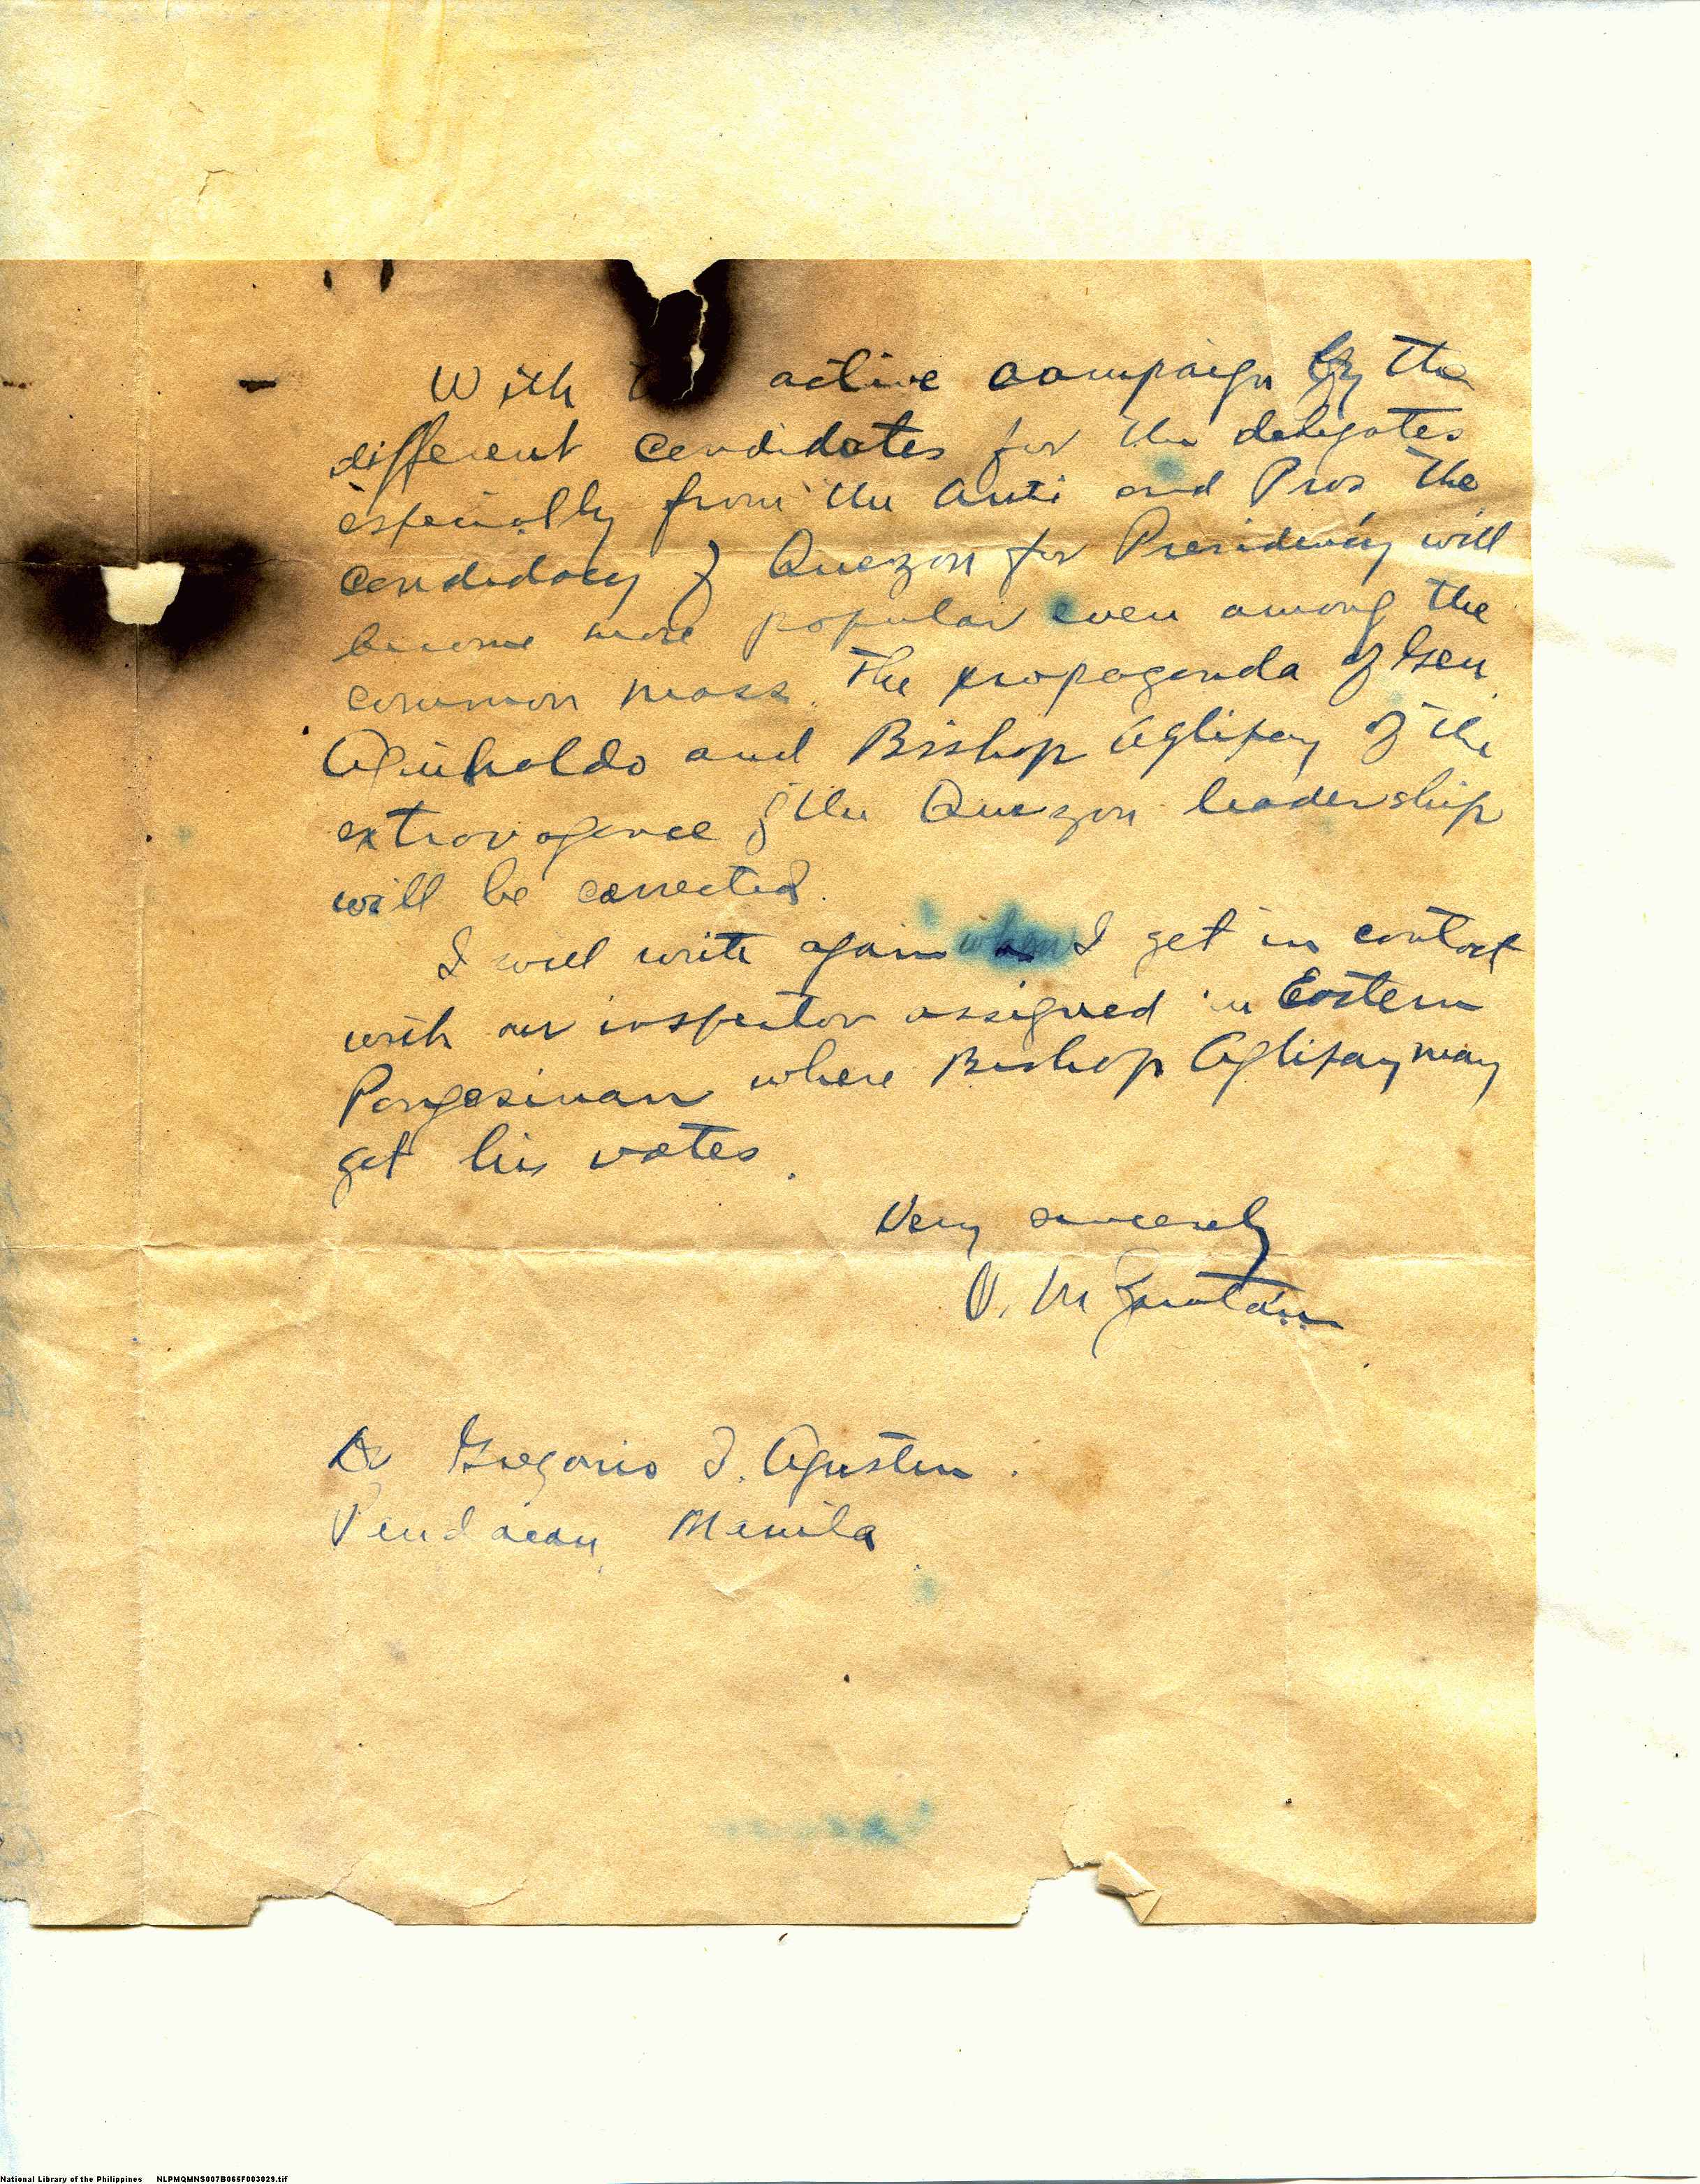 With active campaign by the
different candidates for the delegates
especially from the Anti and Pros the
candidacy of Quezon for Presidency will
become more popular even among the
common mass. The propaganda of Gen.
Aguinaldo and Bishop Aglipay of the
extravagance of the Quezon leadership
will be corrected.
I will write again when I get in contact
with our inspector assigned in Eastern
Pangasinan where Bishop Aglipay may
get his votes.
Very sincerely
V. M.
Dr Gregorio I. Agustin.
Pandacan, Manila
National Library of the Philippines NLPMQMNS007B065F003029.tif